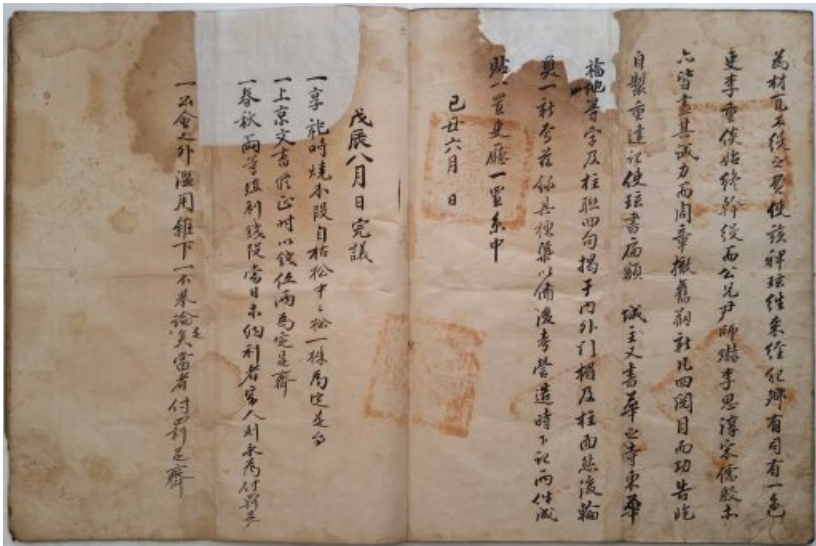 爲材瓦工役之費使該稗珐往來經紀鄕有司有一色
吏李重俟始終幹役而公兄尹師爀李思淳宋儒殷木
六皆盡其誠力而周章撤舊刱新凡四閱月而功告訖
自製重建記使珐書扁額 城主又書華之寺東華
福地等字及柱聯四句揭于內外引楣及柱面然後輪
奐一新 玆錄其梗槩以備後考營造時下記兩件成
貼一置吏廳一置系中
己丑六月 日
戊辰八月 日完議
一享祀時燒木段自枯松中之松一株爲定是白
一上京文書修正时以錢伍兩爲定是齊
一春秋兩等殖利錢段當日未納利者 人則 爲付罰是
一公會之外濫用雜下一不擧論是矣當者付罰是齊